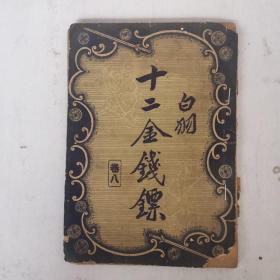 白羽
十二金錢鏢
卷八